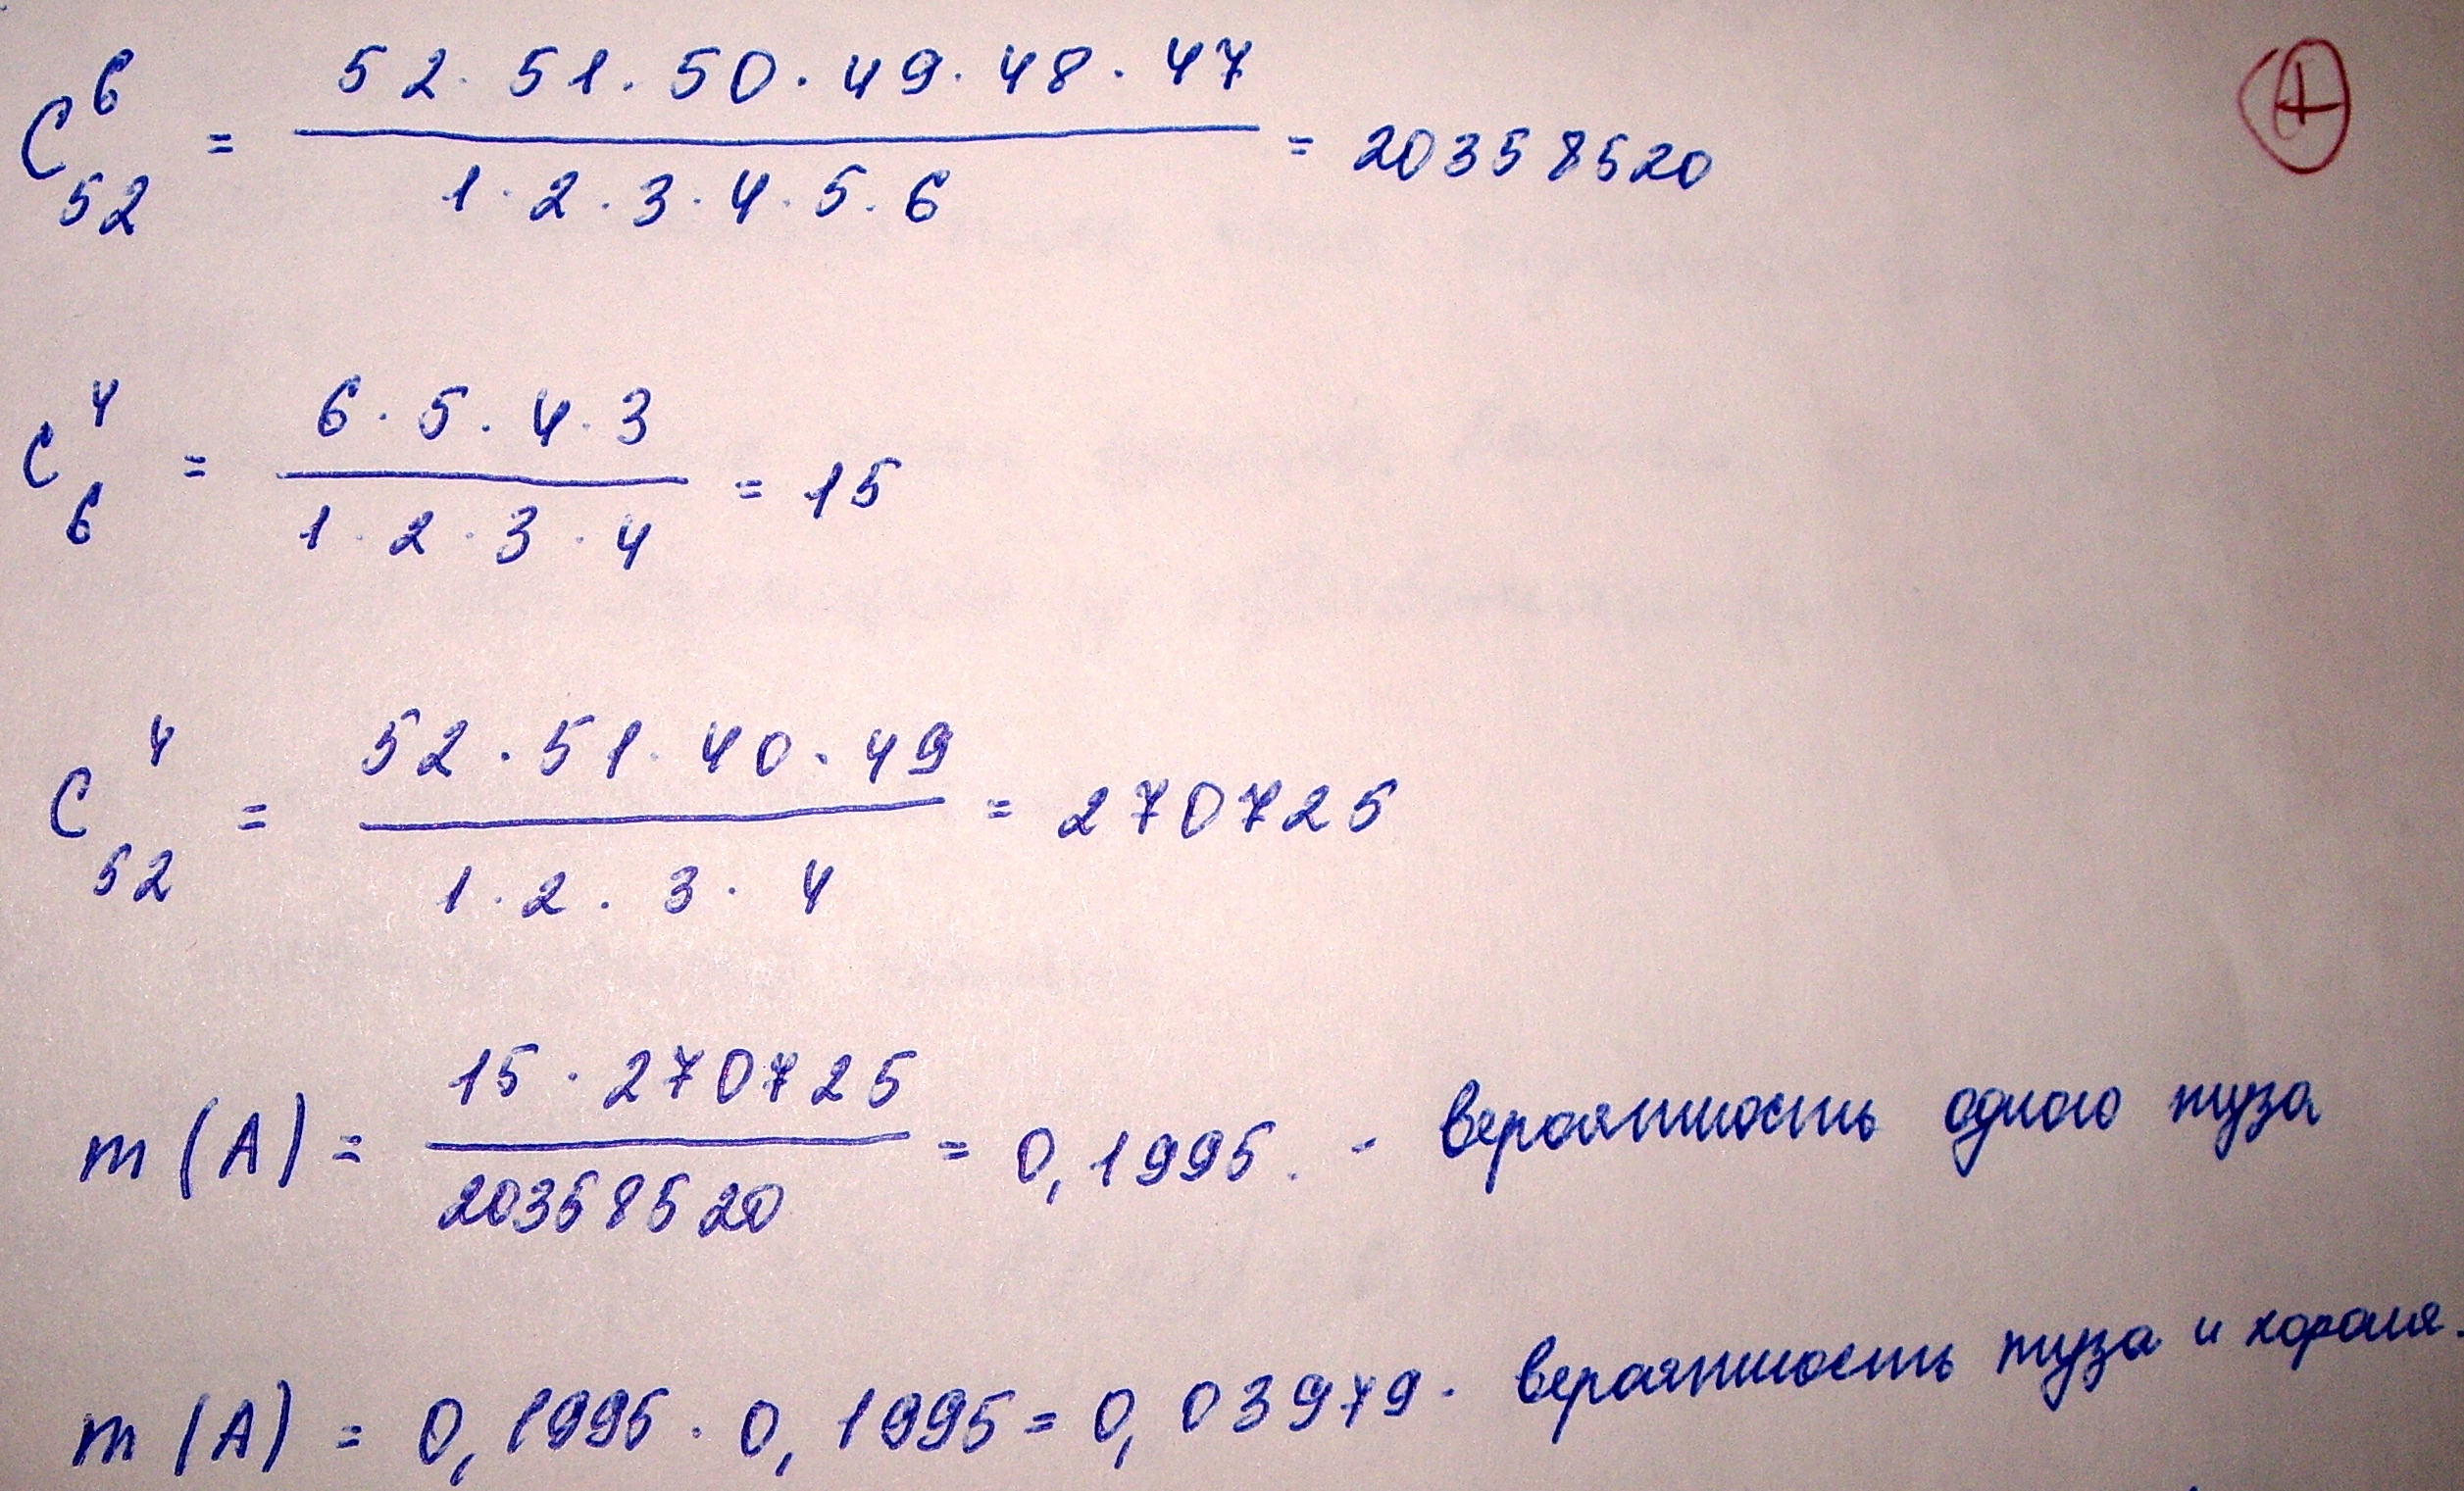 C⁶₅₂ = (52 · 51 · 50 · 49 · 48 · 47) / (1 · 2 · 3 · 4 · 5 · 6) = 20358520
+
C⁴₆ = (6 · 5 · 4 · 3) / (1 · 2 · 3 · 4) = 15
C⁴₅₂ = (52 · 51 · 40 · 49) / (1 · 2 · 3 · 4) = 270725
m(A) = (15 · 270725) / 20358520 = 0,1995. - вероятность одного туза
m(A) = 0,1995 · 0,1995 = 0,03979. вероятность туза и короля.